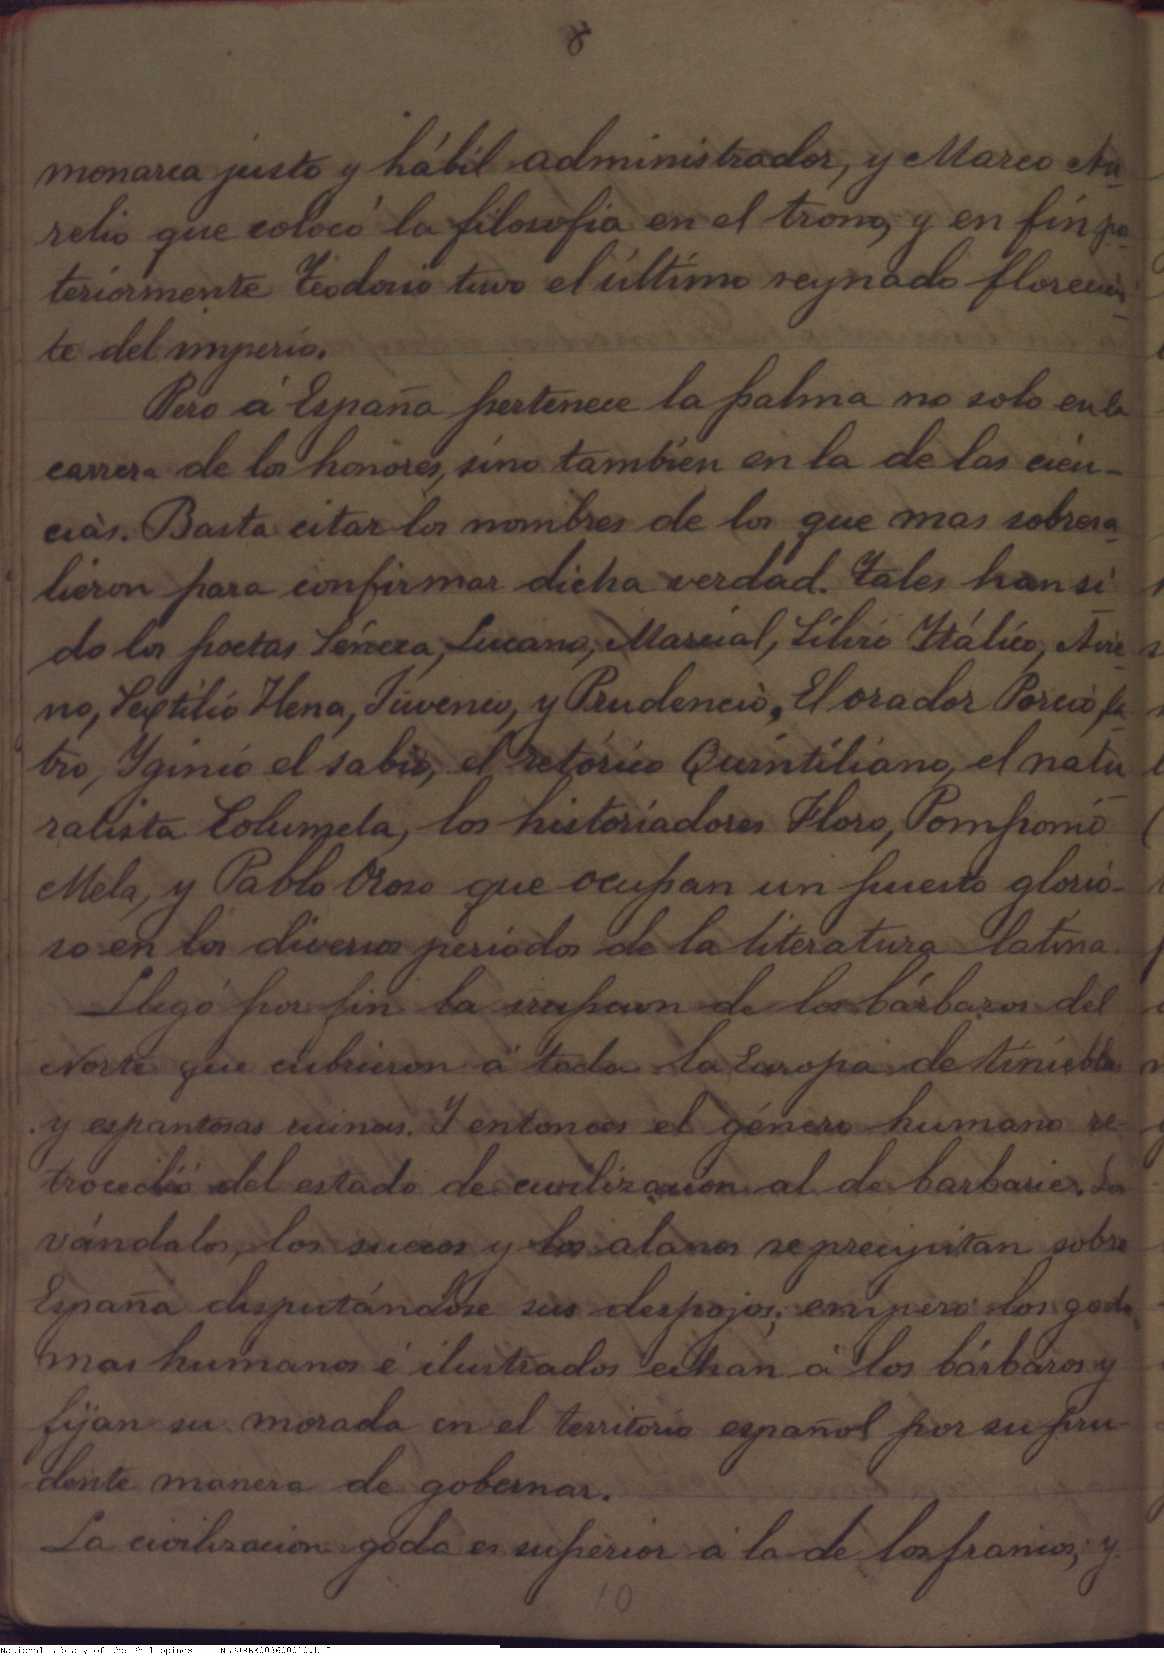 8
monarca justo y hábil administrador, y Marco Au-
relio que colocó la filosofia en el trono, y en fin po-
teriormente Teodosio tuvo el último reynado florecien-
te del imperio.
Pero á España pertenece la palma no solo en la
carrera de los honores, sino tambien en la de las cien-
cias. Basta citar los nombres de los que mas sobresa-
lieron para confirmar dicha verdad. Tales han si-
do los poetas Séneca, Lucano, Marcial, Silvio Itálico, Avie-
no, Sextilio Hena, Juvenco, y Prudencio, El orador Porcio La-
tro, Yginio el sabio, el retórico Quintiliano, el natu-
ralista Columela, los historiadores Floro, Pomponio
Mela, y Pablo Oroso que ocupan un puesto glorio-
so en los diversos periodos de la literatura latina.
Llegó por fin la irupcion de los bárbaros del
Norte que cubrieron á toda la Europa de tinieblas
y espantosas ruinas. Y entonces el género humano re-
trocedió del estado de civilizacion al de barbarie. Los
vándalos, los suevos y los alanos se precipitan sobre
España disputándose sus despojos; empero los godos,
mas humanos é ilustrados echan á los bárbaros y
fijan su morada en el territorio español por su pru-
dente manera de gobernar.
La civilizacion goda es superior á la de los francos, y
10
National Library of the Philippines